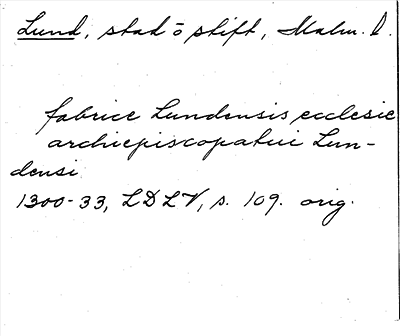 Lund, stad o stift, Malm. D.
fabrice Lundensis ecclesie
archiepiscopatui Lun-
densi
1300-33, LDLV, s. 109. orig.